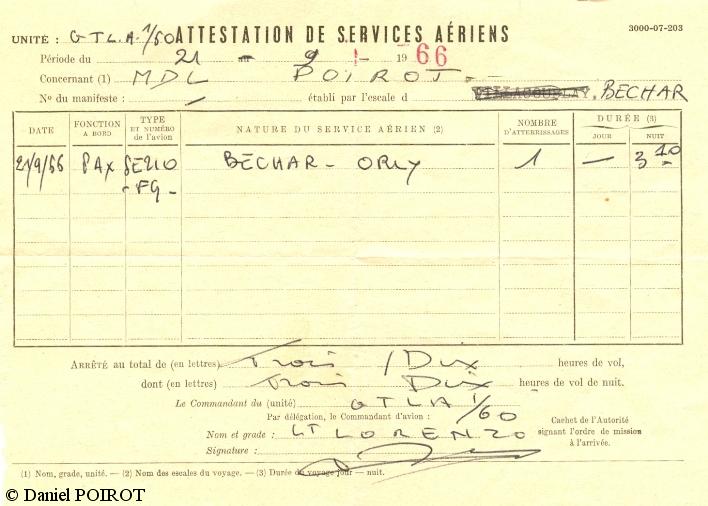 UNITÉ : GTLA 1/60 ATTESTATION DE SERVICES AÉRIENS 3000-07-203
Période du 21 - 9 1966
Concernant (1) MDL POIROT
No du manifeste : / établi par l'escale d VILLACOUBLAY. BECHAR
DATE FONCTION A BORD TYPE ET NUMÉRO de l'avion NATURE DU SERVICE AÉRIEN (2) NOMBRE D'ATTERRISSAGES DURÉE (3) JOUR NUIT
21/9/66 PAX SE210 BECHAR - ORLY 1 — 3 10
- FG -
ARRÊTÉ au total de (en lettres) Trois / Dix heures de vol,
dont (en lettres) Trois Dix heures de vol de nuit.
Le Commandant du (unité) GTLA 1/60
Par délégation, le Commandant d'avion :
Nom et grade : LT LORENZO
Signature :
Cachet de l'Autorité
signant l'ordre de mission
à l'arrivée.
(1) Nom, grade, unité. — (2) Nom des escales du voyage. — (3) Durée du voyage jour — nuit.
© Daniel POIROT